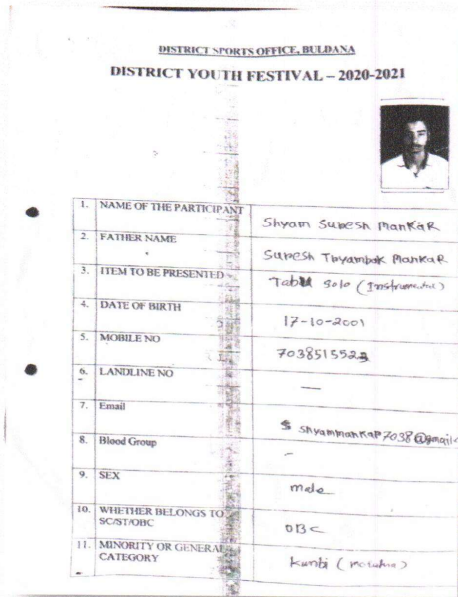 DISTRICT SPORTS OFFICE, BULDANA
DISTRICT YOUTH FESTIVAL – 2020-2021
1. NAME OF THE PARTICIPANT Shyam Suresh Mankar
2. FATHER NAME Suresh Tryambak Mankar
3. ITEM TO BE PRESENTED solo
4. DATE OF BIRTH 17-10-2001
5. MOBILE NO
6. LANDLINE NO —
7. Email
8. Blood Group -
9. SEX male
10. WHETHER BELONGS TO OBC
SC/ST/OBC
11. MINORITY OR GENERAL Kunbi
CATEGORY